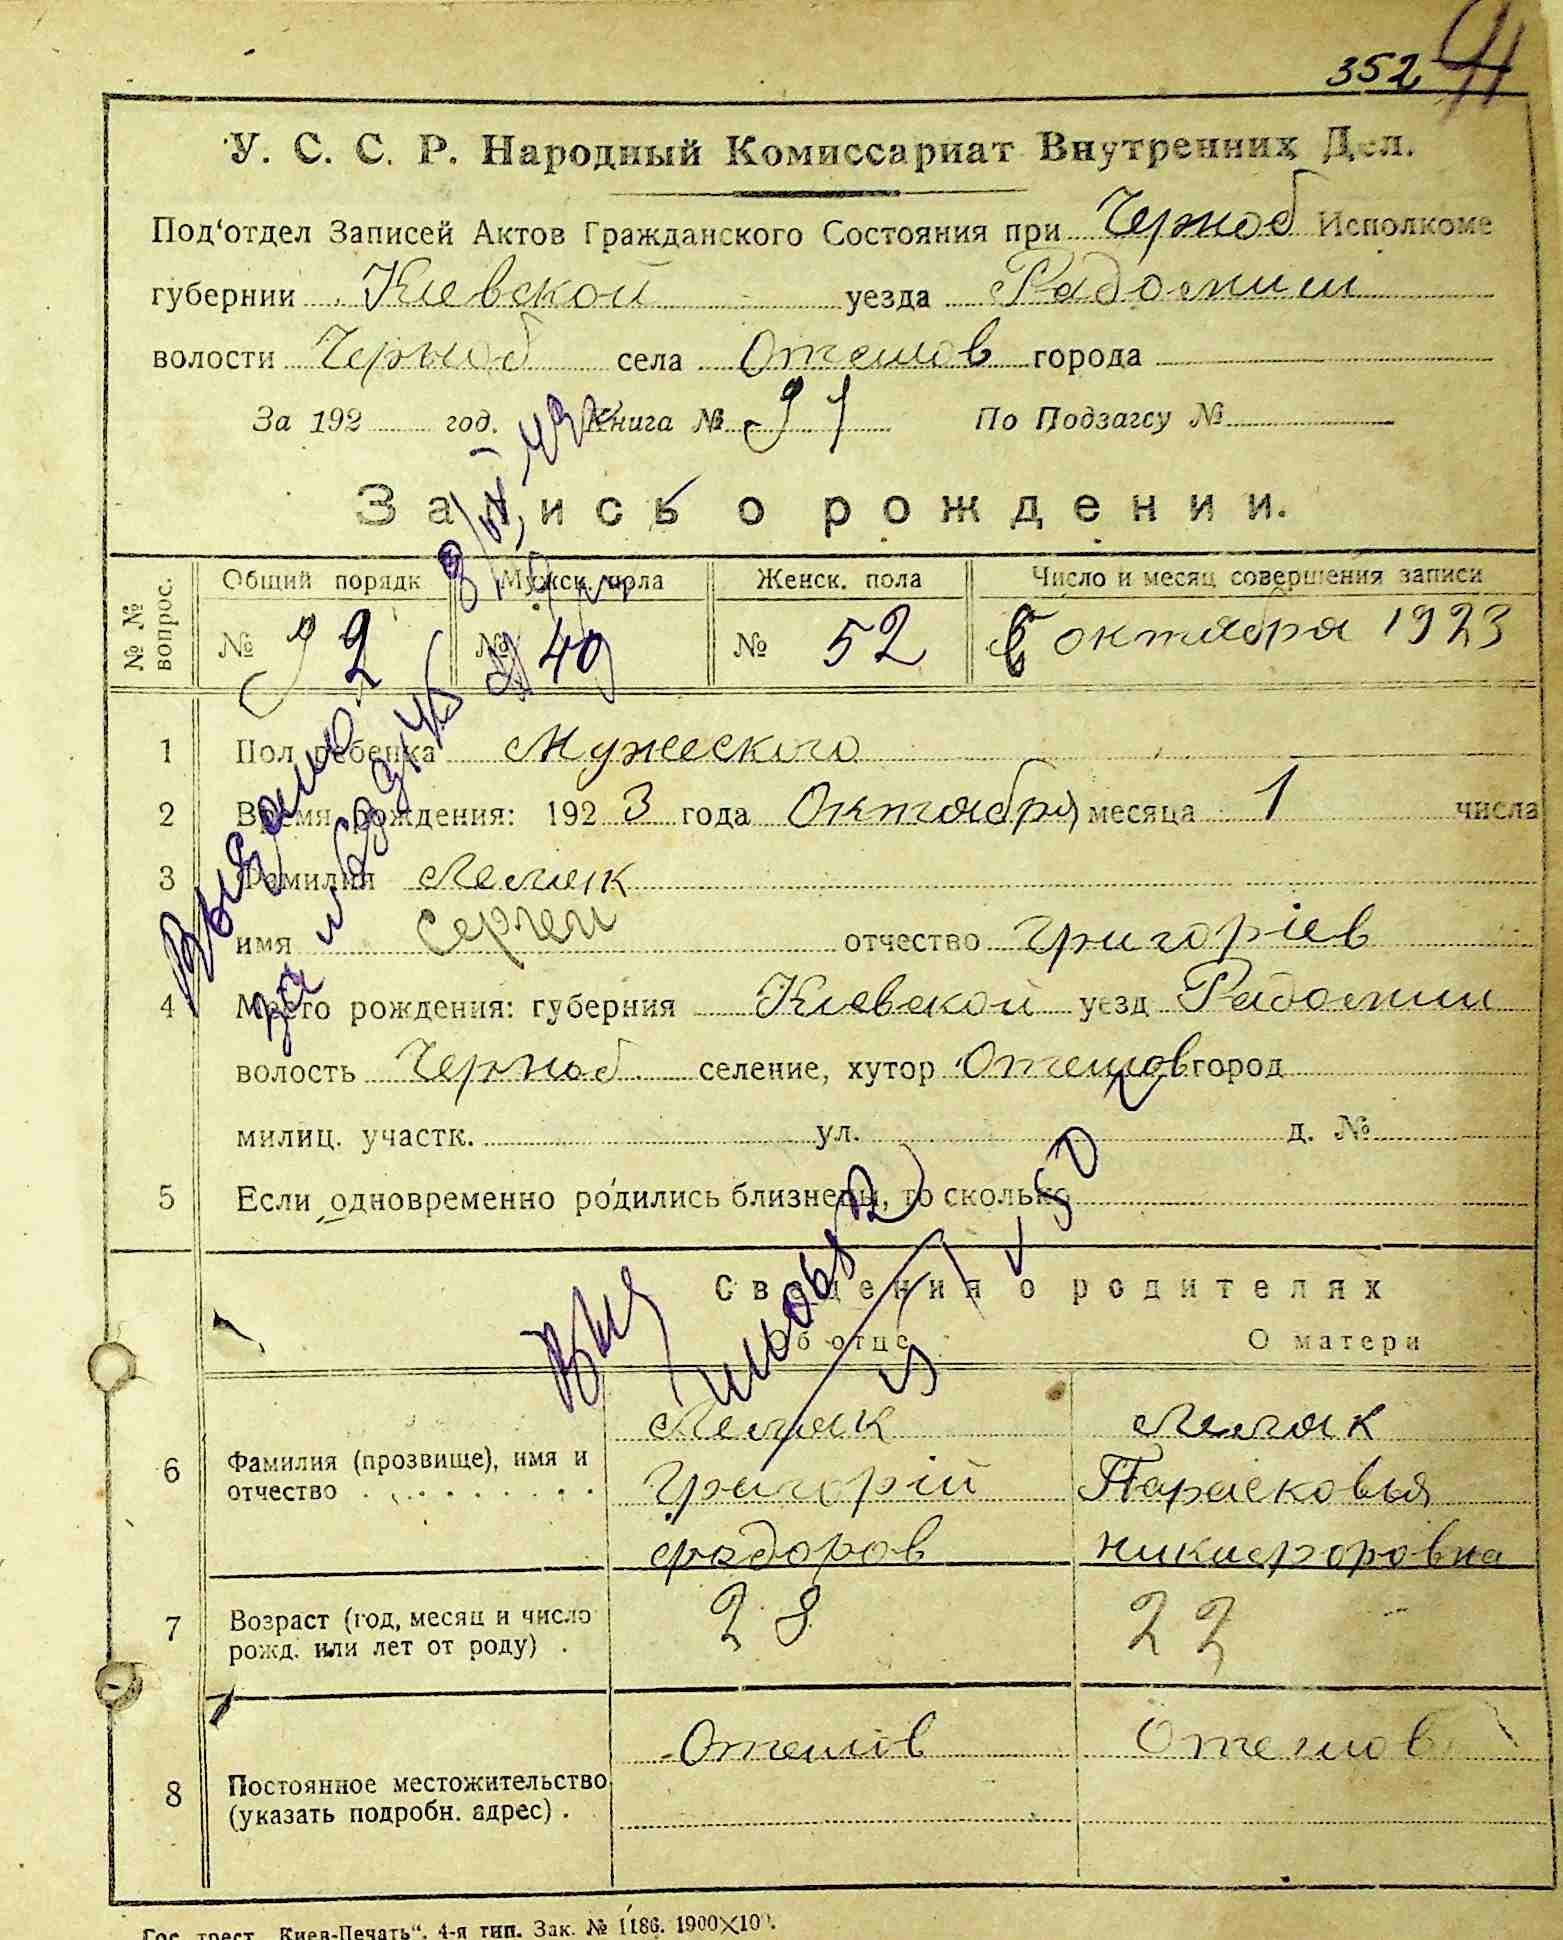 352 91
У. С. С. Р. Народный Комиссариат Внутренних Дел.
Под'отдел Записей Актов Гражданского Состояния при Черноб Исполкоме
губернии Киевской уезда Радомыш
волости Черноб села Оташов города
За 192 год. Книга № 91 По Подзагсу №
Запись о рождении.
№№ вопрос. Общий порядк Мужск. пола Женск. пола Число и месяц совершения записи
№ 92 № 40 № 52 октября 1923
1 Пол ребенка Мужеского
2 Время рождения: 1923 года Октября месяца 1 числа
3 Фамилия Лемяк
имя Сергеи отчество Григоріев
4 Место рождения: губерния Киевской уезд Радомыш
волость Черноб селение, хутор Оташов город
милиц. участк. ул. д. №
5 Если одновременно родились близнецы, то сколько
Сведения о родителях
Об отце О матери
Лемяк Лемяк
6 Фамилия (прозвище), имя и Григорій Парасковья
отчество Фадоров Никифоровна
7 Возраст (год, месяц и число 28 22
рожд. или лет от роду)
Оташов Оташов
8 Постоянное местожительство
(указать подробн. адрес).
Выдано
за №
Гос. трест „Киев-Печать“. 4-я тип. Зак. № 1186. 1900×100.